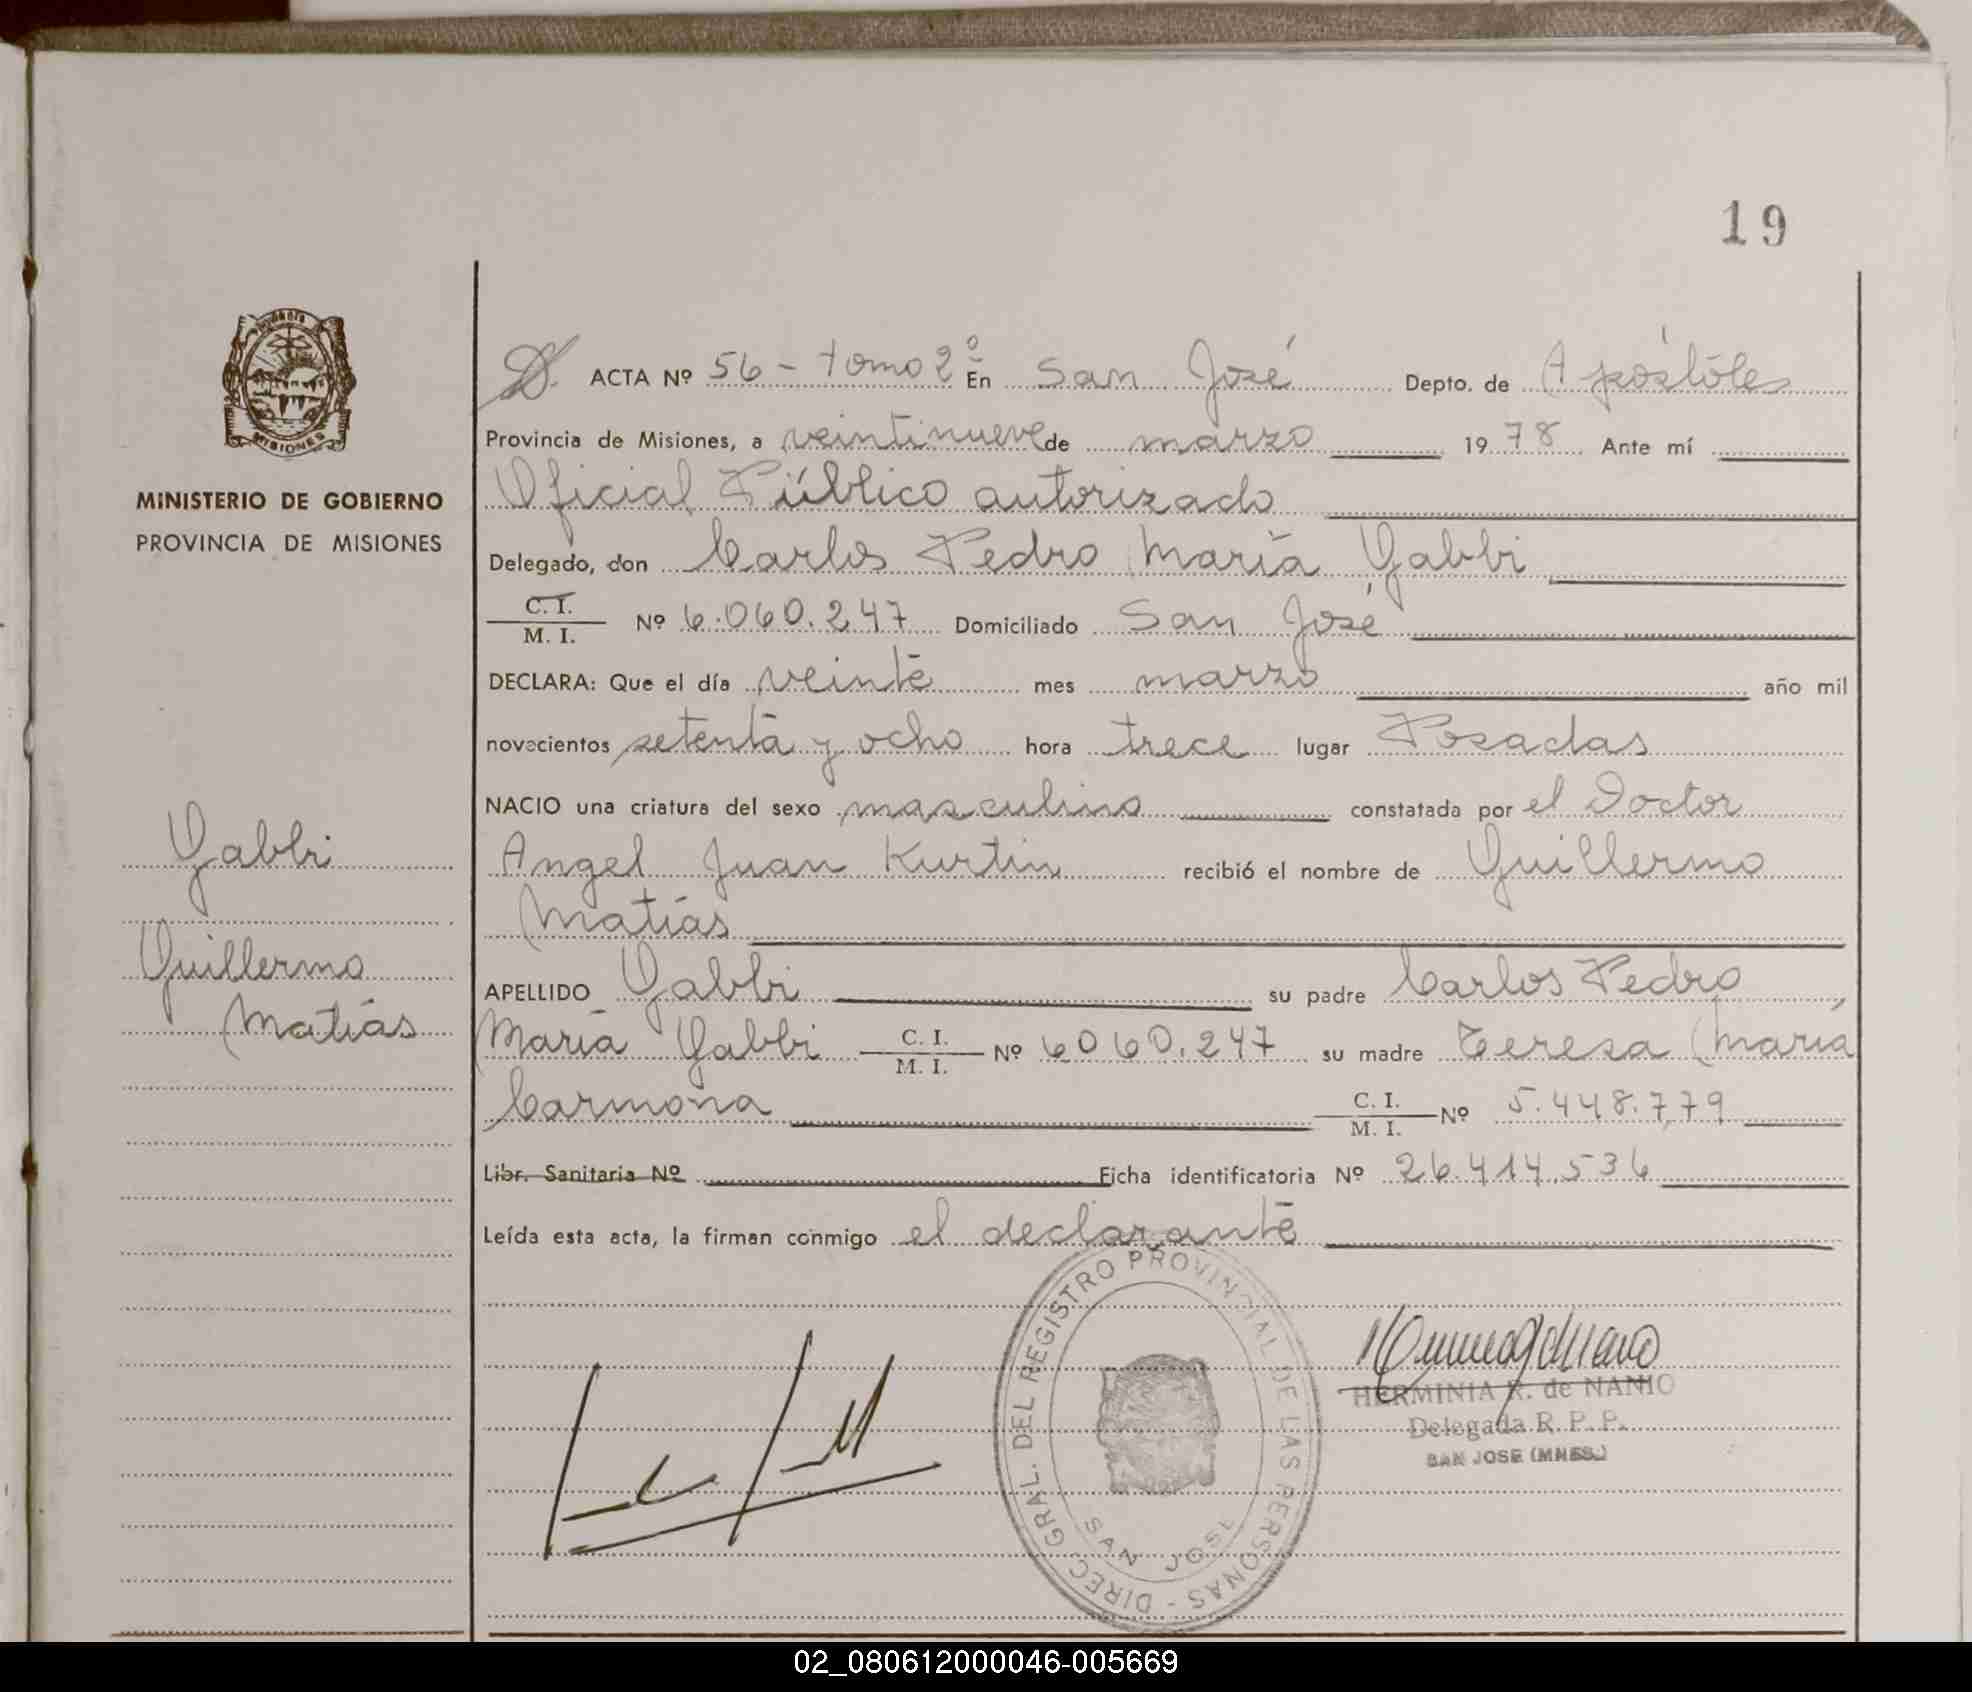 19
MISIONES
MINISTERIO DE GOBIERNO
PROVINCIA DE MISIONES
Gabbi
Guillermo
Matías
ACTA Nº 56 - tomo 2º En San José Depto. de Apóstoles
Provincia de Misiones, a veintinueve de marzo 1978 Ante mí
Oficial Público autorizado
Delegado, don Carlos Pedro María Gabbi
C. I. / M. I. Nº 6.060.247 Domiciliado San José
DECLARA: Que el día veinte mes marzo año mil
novecientos setenta y ocho hora trece lugar Posadas
NACIO una criatura del sexo masculino constatada por el Doctor
Angel Juan Kurtin recibió el nombre de Guillermo
Matías
APELLIDO Gabbi su padre Carlos Pedro
María Gabbi C. I. / M. I. Nº 6060.247 su madre Teresa María
Carmona C. I. / M. I. Nº 5.448.779
Libr. Sanitaria Nº Ficha identificatoria Nº 26.414.536
Leída esta acta, la firman conmigo el declarante
DIREC GRAL. DEL REGISTRO PROVINCIAL DE LAS PERSONAS -
SAN JOSE
HERMINIA R. de NANIO
Delegada R. P. P.
SAN JOSE (MNES.)
02_080612000046-005669